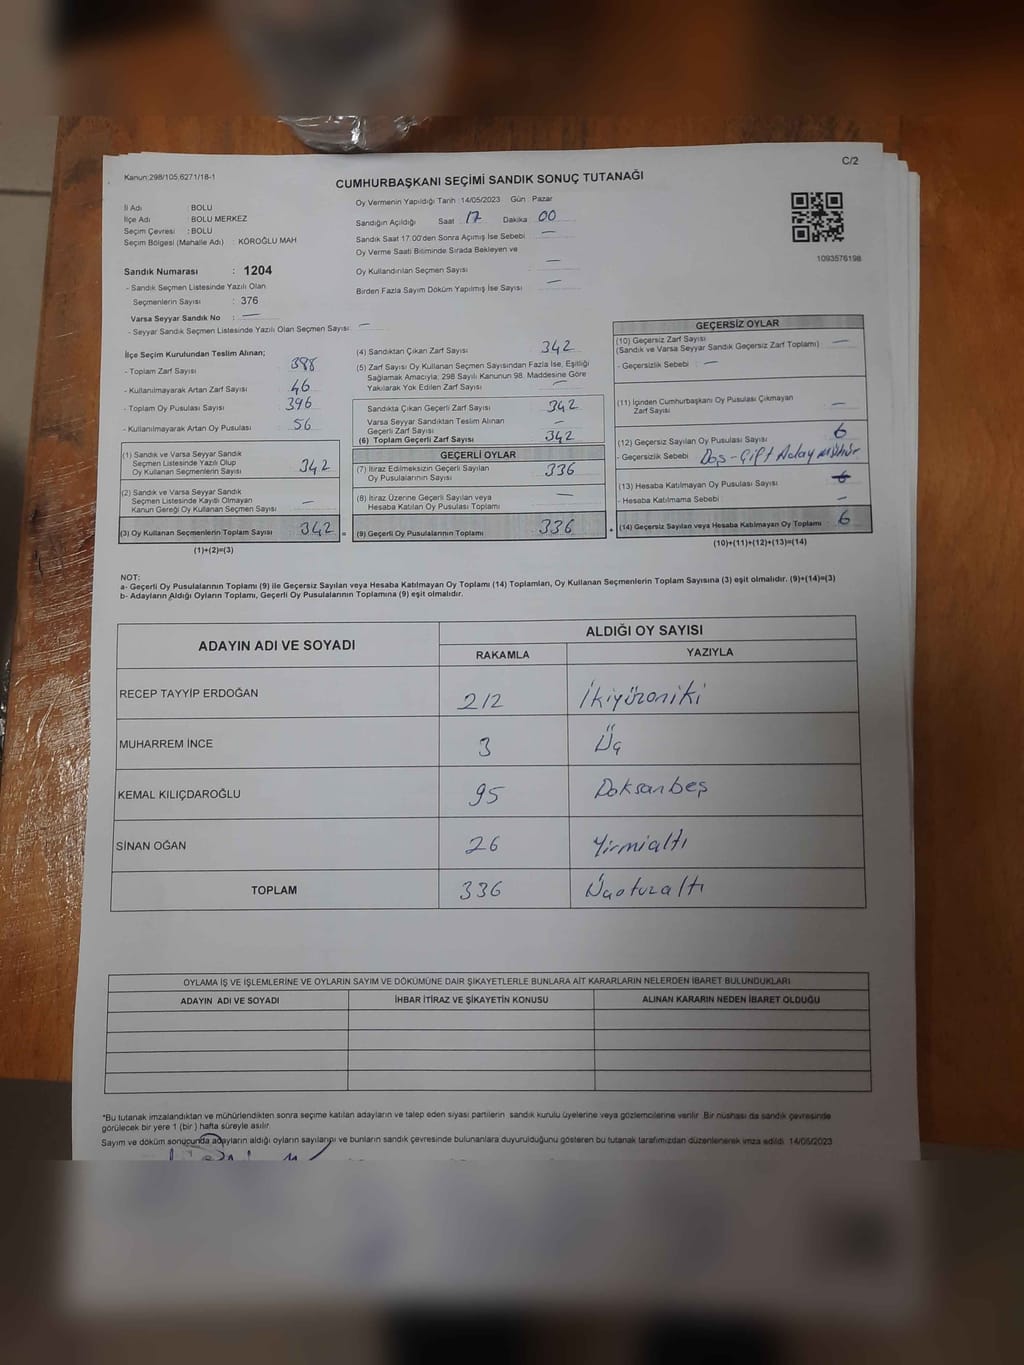 C/2
Kanun:298/105,6271/18-1
CUMHURBAŞKANI SEÇİMİ SANDIK SONUÇ TUTANAĞI
İl Adı : BOLU
İlçe Adı : BOLU MERKEZ
Seçim Çevresi : BOLU
Seçim Bölgesi (Mahalle Adı) : KÖROĞLU MAH
Sandık Numarası : 1204
- Sandık Seçmen Listesinde Yazılı Olan
Seçmenlerin Sayısı : 376
Varsa Seyyar Sandık No : —
- Seyyar Sandık Seçmen Listesinde Yazılı Olan Seçmen Sayısı : —
Oy Vermenin Yapıldığı Tarih :14/05/2023 Gün : Pazar
Sandığın Açıldığı Saat : 17 Dakika : 00
Sandık Saat 17:00'den Sonra Açımış İse Sebebi : —
Oy Verme Saati Bitiminde Sırada Bekleyen ve
Oy Kullandırılan Seçmen Sayısı : —
Birden Fazla Sayım Döküm Yapılmış İse Sayısı : —
1093576198
İlçe Seçim Kurulundan Teslim Alınan;
- Toplam Zarf Sayısı : 388
- Kullanılmayarak Artan Zarf Sayısı : 46
- Toplam Oy Pusulası Sayısı : 396
- Kullanılmayarak Artan Oy Pusulası : 56
(1) Sandık ve Varsa Seyyar Sandık
Seçmen Listesinde Yazılı Olup
Oy Kullanan Seçmenlerin Sayısı : 342
(2) Sandık ve Varsa Seyyar Sandık
Seçmen Listesinde Kayıtlı Olmayan
Kanun Gereği Oy Kullanan Seçmen Sayısı : —
(3) Oy Kullanan Seçmenlerin Toplam Sayısı : 342 =
(1)+(2)=(3)
(4) Sandıktan Çıkan Zarf Sayısı : 342
(5) Zarf Sayısı Oy Kullanan Seçmen Sayısından Fazla İse, Eşitliği
Sağlamak Amacıyla; 298 Sayılı Kanunun 98. Maddesine Göre
Yakılarak Yok Edilen Zarf Sayısı : —
Sandıkta Çıkan Geçerli Zarf Sayısı : 342
Varsa Seyyar Sandıktan Teslim Alınan
Geçerli Zarf Sayısı : —
(6) Toplam Geçerli Zarf Sayısı : 342
GEÇERLİ OYLAR
(7) İtiraz Edilmeksizin Geçerli Sayılan
Oy Pusulalarının Sayısı : 336
(8) İtiraz Üzerine Geçerli Sayılan veya
Hesaba Katılan Oy Pusulası Toplamı : —
(9) Geçerli Oy Pusulalarının Toplamı : 336 +
GEÇERSİZ OYLAR
(10) Geçersiz Zarf Sayısı
(Sandık ve Varsa Seyyar Sandık Geçersiz Zarf Toplamı) : —
- Geçersizlik Sebebi : —
(11) İçinden Cumhurbaşkanı Oy Pusulası Çıkmayan
Zarf Sayısı : —
(12) Geçersiz Sayılan Oy Pusulası Sayısı : 6
- Geçersizlik Sebebi : Boş - Çift Aday mühür
(13) Hesaba Katılmayan Oy Pusulası Sayısı : 6
- Hesaba Katılmama Sebebi : —
(14) Geçersiz Sayılan veya Hesaba Katılmayan Oy Toplamı : 6
(10)+(11)+(12)+(13)=(14)
NOT:
a- Geçerli Oy Pusulalarının Toplamı (9) ile Geçersiz Sayılan veya Hesaba Katılmayan Oy Toplamı (14) Toplamları, Oy Kullanan Seçmenlerin Toplam Sayısına (3) eşit olmalıdır. (9)+(14)=(3)
b- Adayların Aldığı Oyların Toplamı, Geçerli Oy Pusulalarının Toplamına (9) eşit olmalıdır.
ADAYIN ADI VE SOYADI
ALDIĞI OY SAYISI
RAKAMLA YAZIYLA
RECEP TAYYİP ERDOĞAN 212 İkiyüzoniki
MUHARREM İNCE 3 Üç
KEMAL KILIÇDAROĞLU 95 Doksanbeş
SİNAN OĞAN 26 Yirmialtı
TOPLAM 336 Üçotuzaltı
OYLAMA İŞ VE İŞLEMLERİNE VE OYLARIN SAYIM VE DÖKÜMÜNE DAİR ŞİKAYETLERLE BUNLARA AİT KARARLARIN NELERDEN İBARET BULUNDUKLARI
ADAYIN ADI VE SOYADI İHBAR İTİRAZ VE ŞİKAYETİN KONUSU ALINAN KARARIN NEDEN İBARET OLDUĞU
*Bu tutanak imzalandıktan ve mühürlendikten sonra seçime katılan adayların ve talep eden siyasi partilerin sandık kurulu üyelerine veya gözlemcilerine verilir .Bir nüshası da sandık çevresinde
görülecek bir yere 1 (bir ) hafta süreyle asılır.
Sayım ve döküm sonucunda adayların aldığı oyların sayılarını ve bunların sandık çevresinde bulunanlara duyurulduğunu gösteren bu tutanak tarafımızdan düzenlenerek imza edildi. 14/05/2023